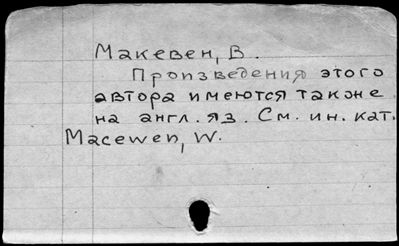 Макевен, В.
Произведения этого
автора имеются также
на англ. яз. См. ин. кат.
Macewen, W.